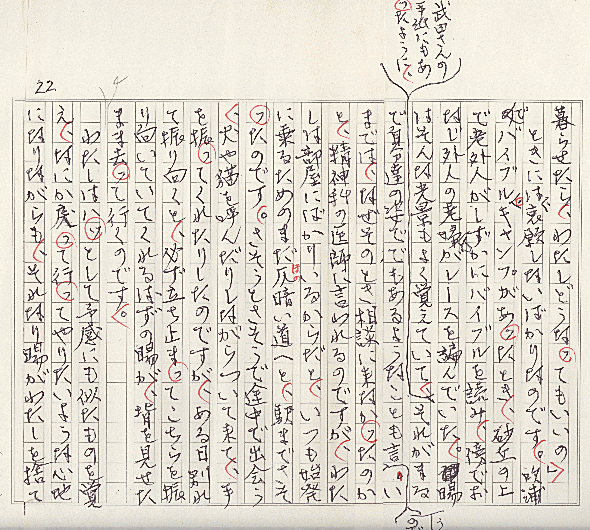 武田さんの
手紙にもあ
ったように、
22
暮らせたら、わたしどうなってもいいの」
ときには哀願しないばかりなのです。吹浦
でバイブルキャンプがあったとき、砂丘の上
で老外人がしずかにバイブルを読み、傍でお
なじ外人の老婦がレースを編んでいた。陽
はそんな光景もよく覚えていて、それがまる
で自分達の姿ででもあるようなことも言い
までは、なぜそのとき相談に来なかったのか
と、精神科の医師に言われるのですが、わた
しは部屋にばかりいるからだと、いつも始発
に乗るためのまだ仄暗い道へと、駅までさそ
ったのです。さそうとさそうで途中で出会う
犬や猫を呼んだりしながらついて来て、手
を振ってくれたりしたのですが、ある日別れ
て振り向くと、必ず立ち止まってこちらを振
り向いていてくれるはずの陽が、背を見せた
まま去って行くのです。
わたしはハッとして予感にも似たものを覚
え、なにか戻って行ってやりたいような心地
になりながらも、それなり陽がわたしを捨て